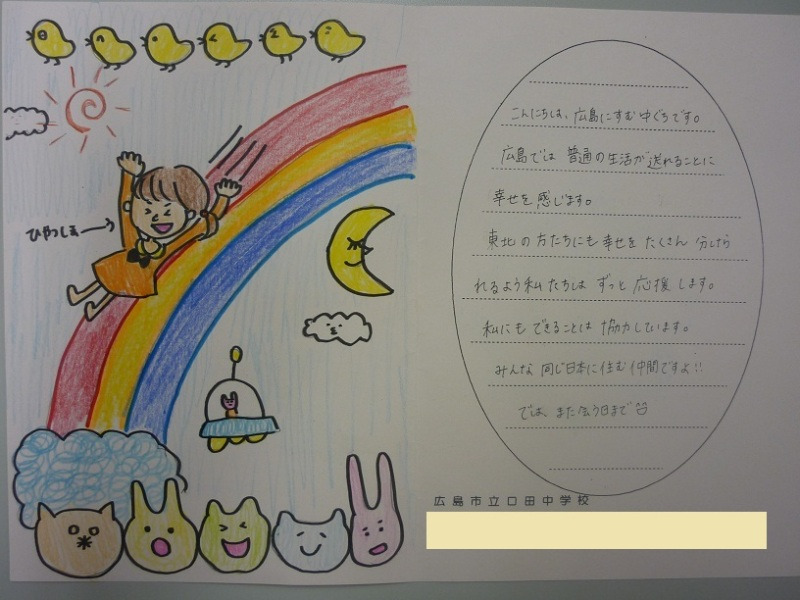 ひやっしまー
こんにちは、広島にすむ中ぐちです。
広島では 普通の生活が送れることに
幸せを感じます。
東北の方たちにも幸せをたくさん 分けら
れるよう私たちは ずっと 応援します。
私にもできることは 協力しています。
みんな 同じ日本に住む仲間ですよ!!
では、また会う日まで
広島市立口田中学校